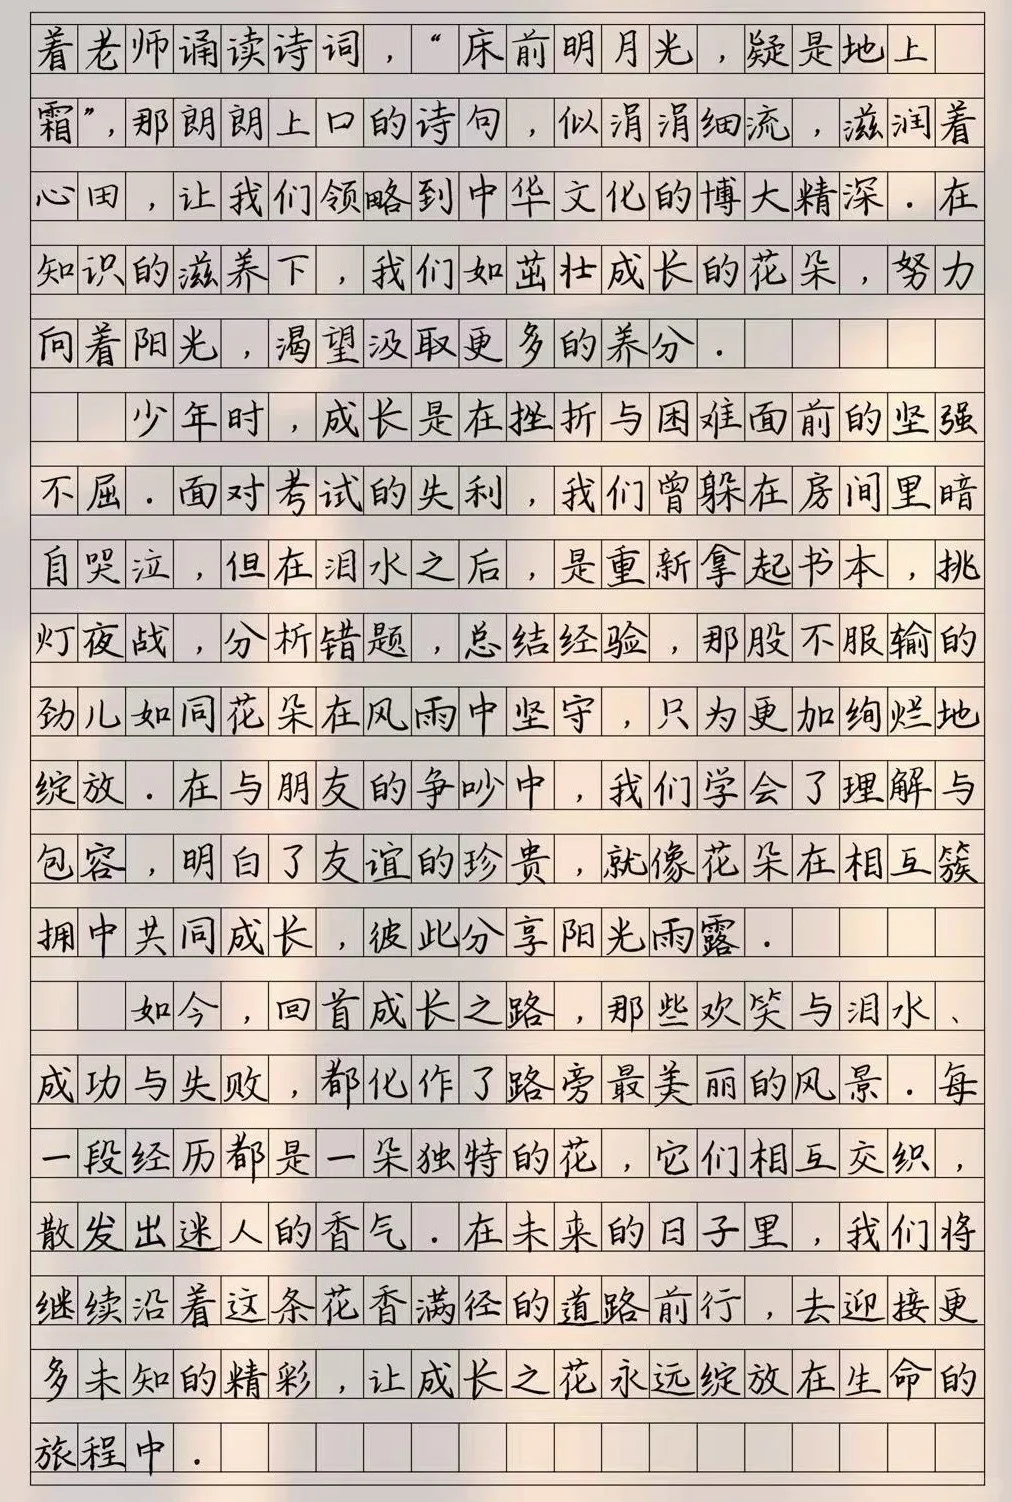 着老师诵读诗词，“床前明月光，疑是地上
霜”，那朗朗上口的诗句，似涓涓细流，滋润着
心田，让我们领略到中华文化的博大精深．在
知识的滋养下，我们如茁壮成长的花朵，努力
向着阳光，渴望汲取更多的养分．
少年时，成长是在挫折与困难面前的坚强
不屈．面对考试的失利，我们曾躲在房间里暗
自哭泣，但在泪水之后，是重新拿起书本，挑
灯夜战，分析错题，总结经验，那股不服输的
劲儿如同花朵在风雨中坚守，只为更加绚烂地
绽放．在与朋友的争吵中，我们学会了理解与
包容，明白了友谊的珍贵，就像花朵在相互簇
拥中共同成长，彼此分享阳光雨露．
如今，回首成长之路，那些欢笑与泪水、
成功与失败，都化作了路旁最美丽的风景．每
一段经历都是一朵独特的花，它们相互交织，
散发出迷人的香气．在未来的日子里，我们将
继续沿着这条花香满径的道路前行，去迎接更
多未知的精彩，让成长之花永远绽放在生命的
旅程中．